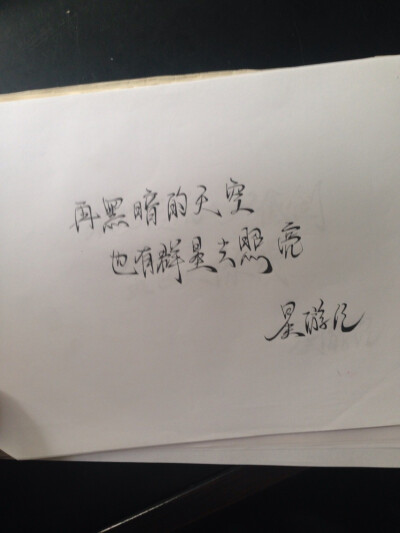 再黑暗的天空
也有群星去照亮
星游记